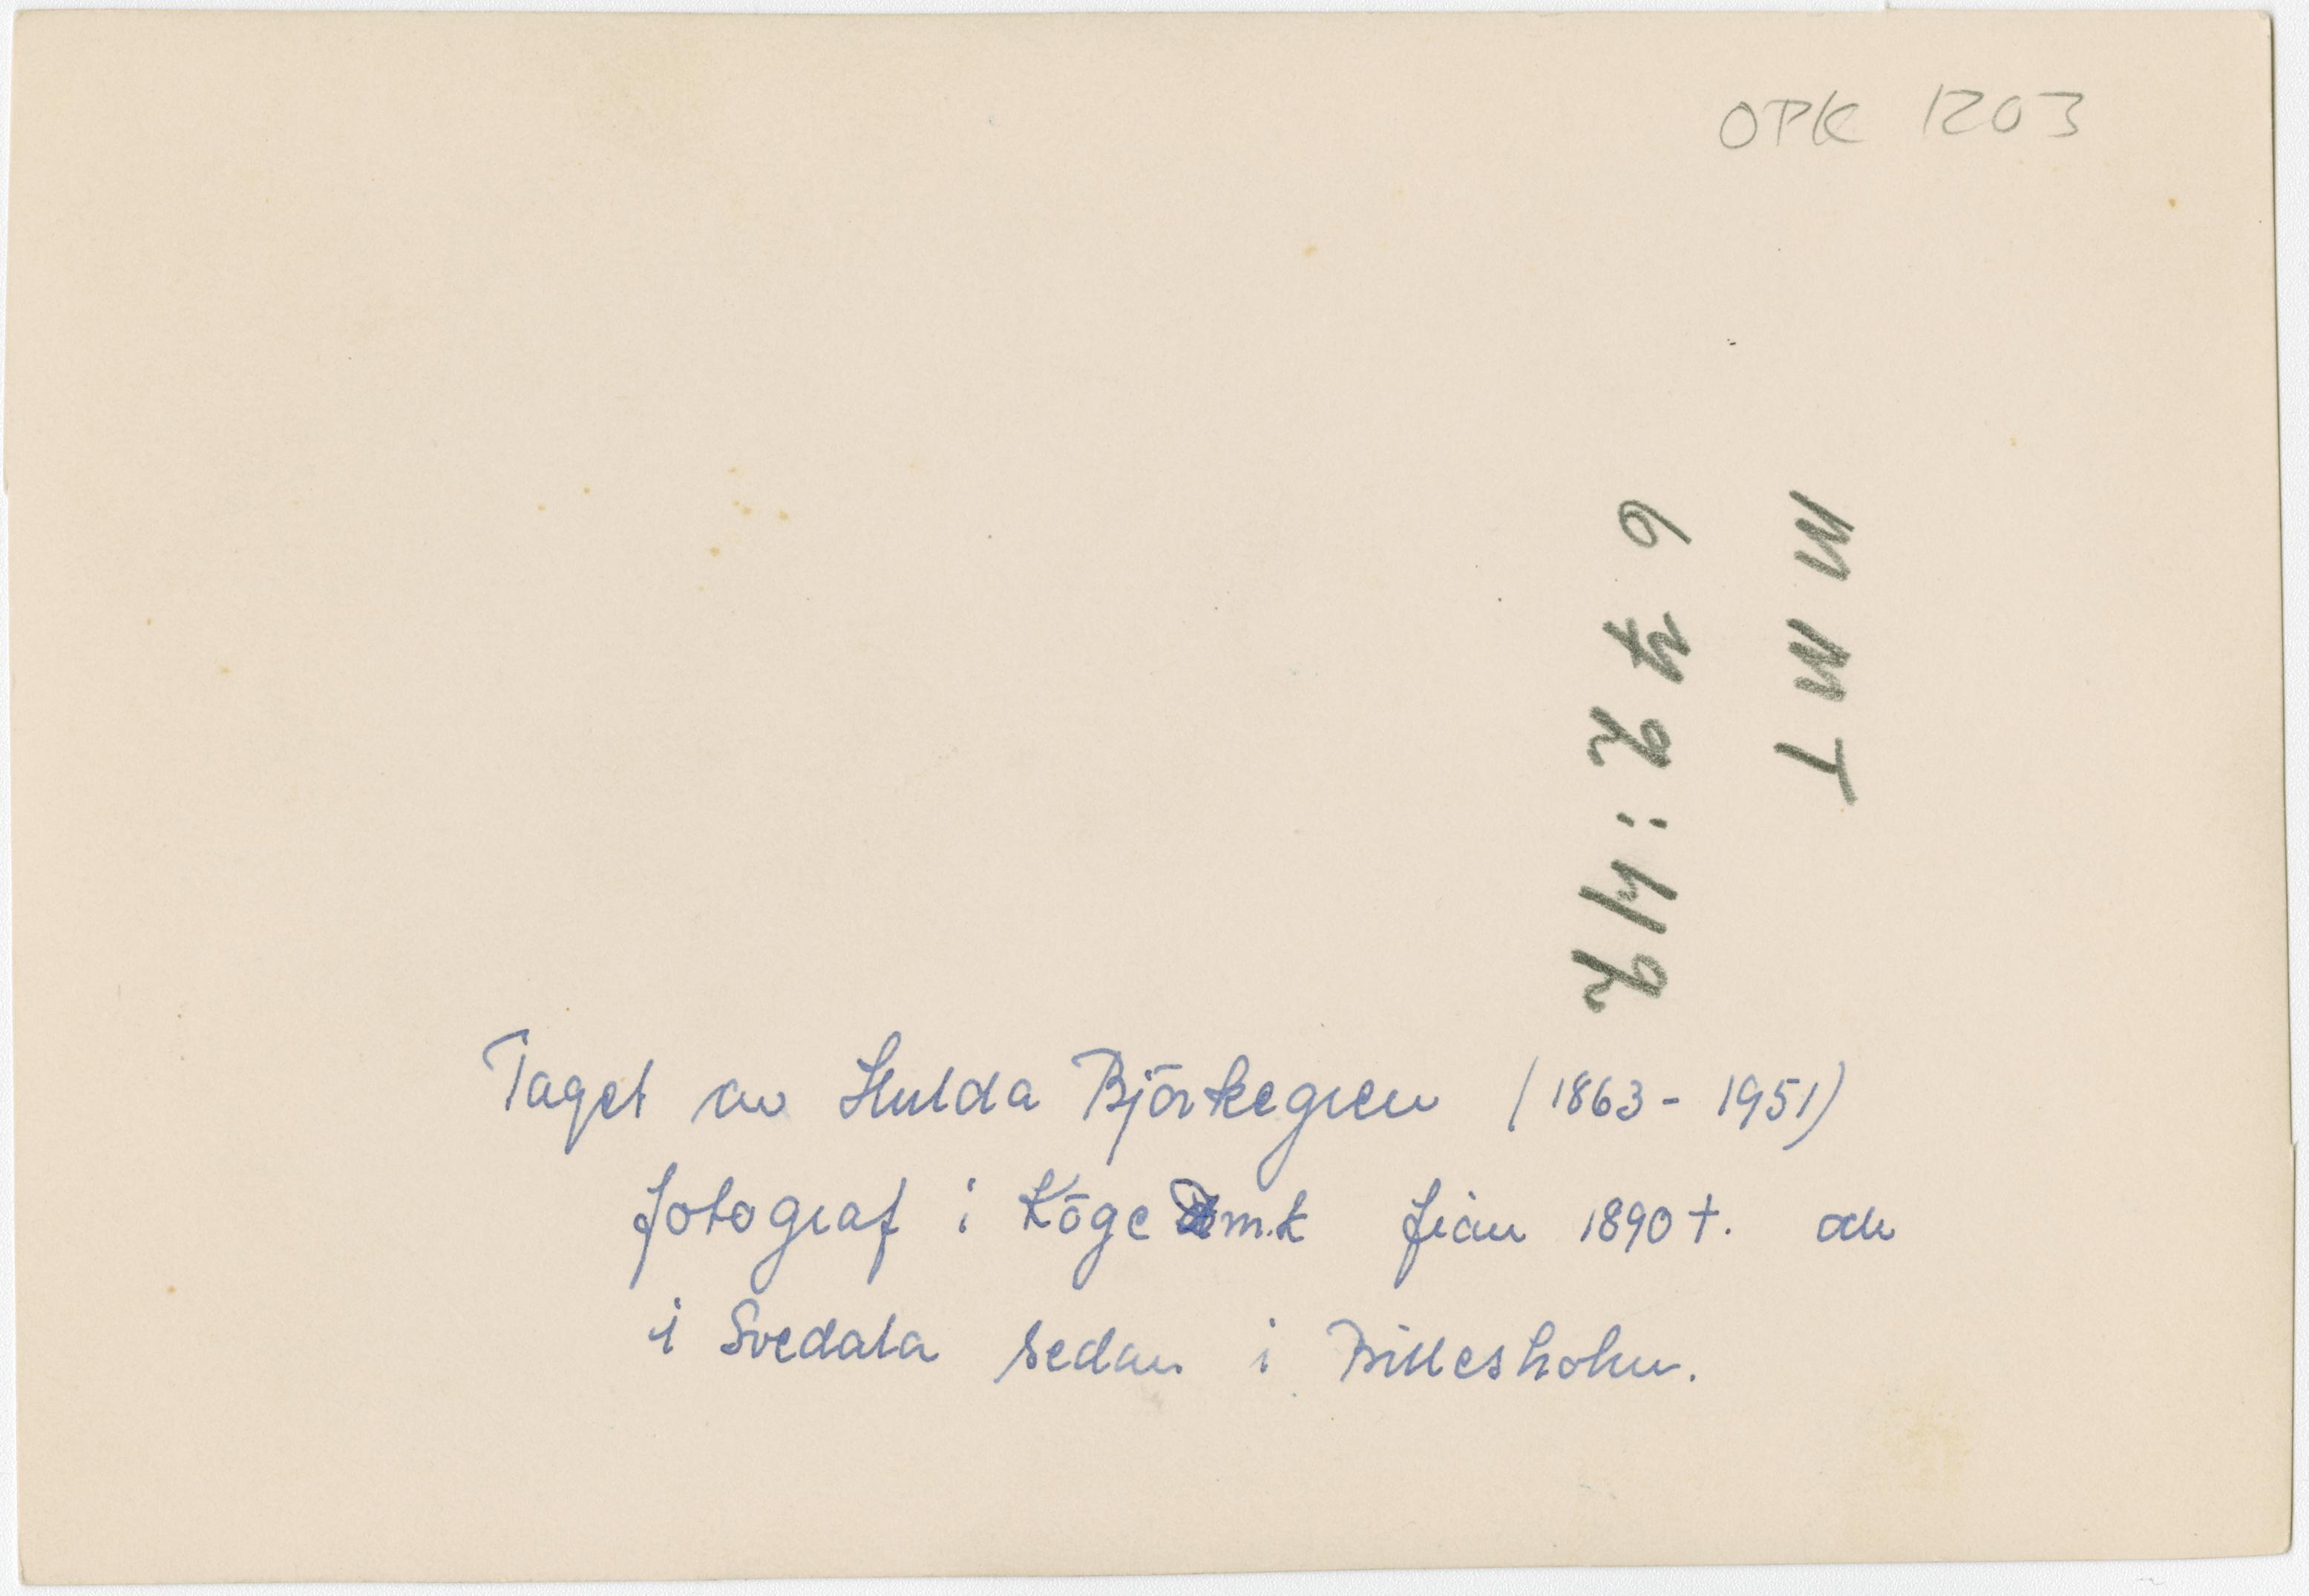 OPK 1203
MMT
Taget av Hulda Björkegren (1863 - 1951)
fotograf i Köge Dm.k från 1890 t. och
i Svedala sedan i Billesholm.